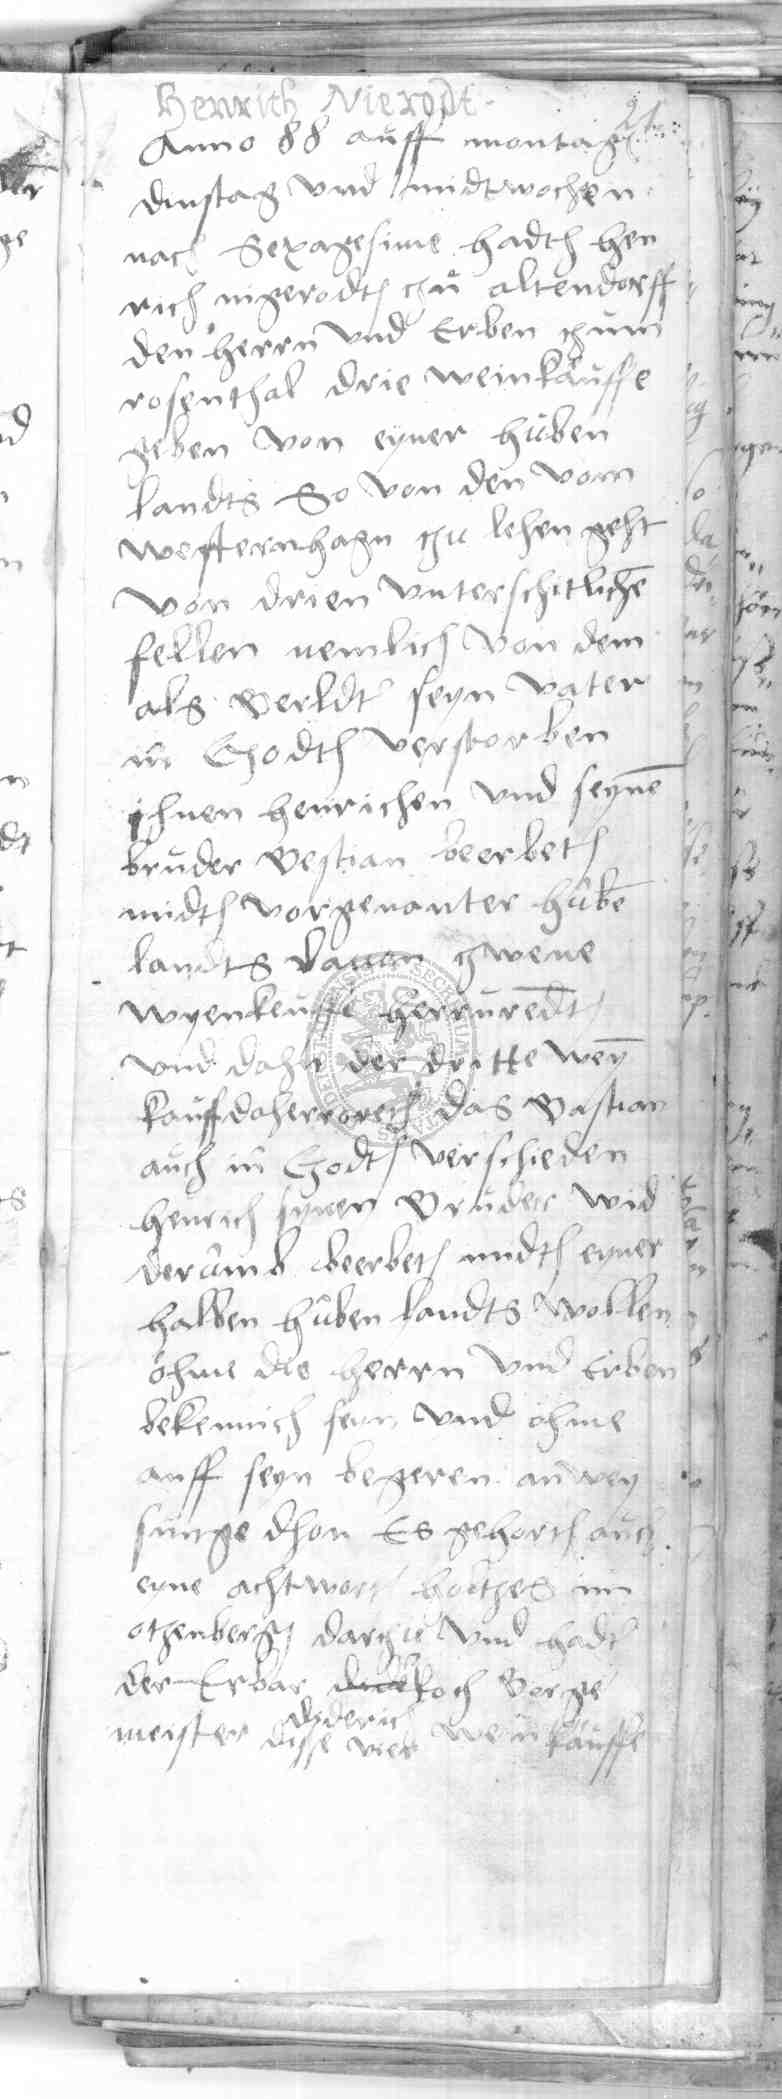 Henrich Nierodt
21
Anno 88 auff montag
dinstag vnd midtwochen
nach Sexagesime hadth Hen
rich nigerodth zu altendorff
den herrn vnd Erben zum
rosenthal drie weinkauffe
geben von eyner huben
landts So von den vom
westernhagn zu lehen geht
von drien vnterschitliche
fellen nemlich von dem
als Berldt seyn vater
in Godth verstorben
ihnen henrichen vnd seyne
bruder Bestian beerbeth
midth vorgenanter hube
landts dauon zwene
wyenkeuffe herruredt
vnd dahn der dritte wey
kauff daherroreth das Bastian
auch in Godth verschieden
henrich synen Bruder wid
derumb beerbeth midth eyner
halben huben landts wollen
ohme die herrn vnd Erben
bekennich sein vnd ohme
auff seyn begeren anwey
sunge dhon Es gehorth auch
eyne achtwort holtzes im
otzenberg darzu vnd hadt
der Erbar koch Borge
meister dyderich
disse vier weinkauffe